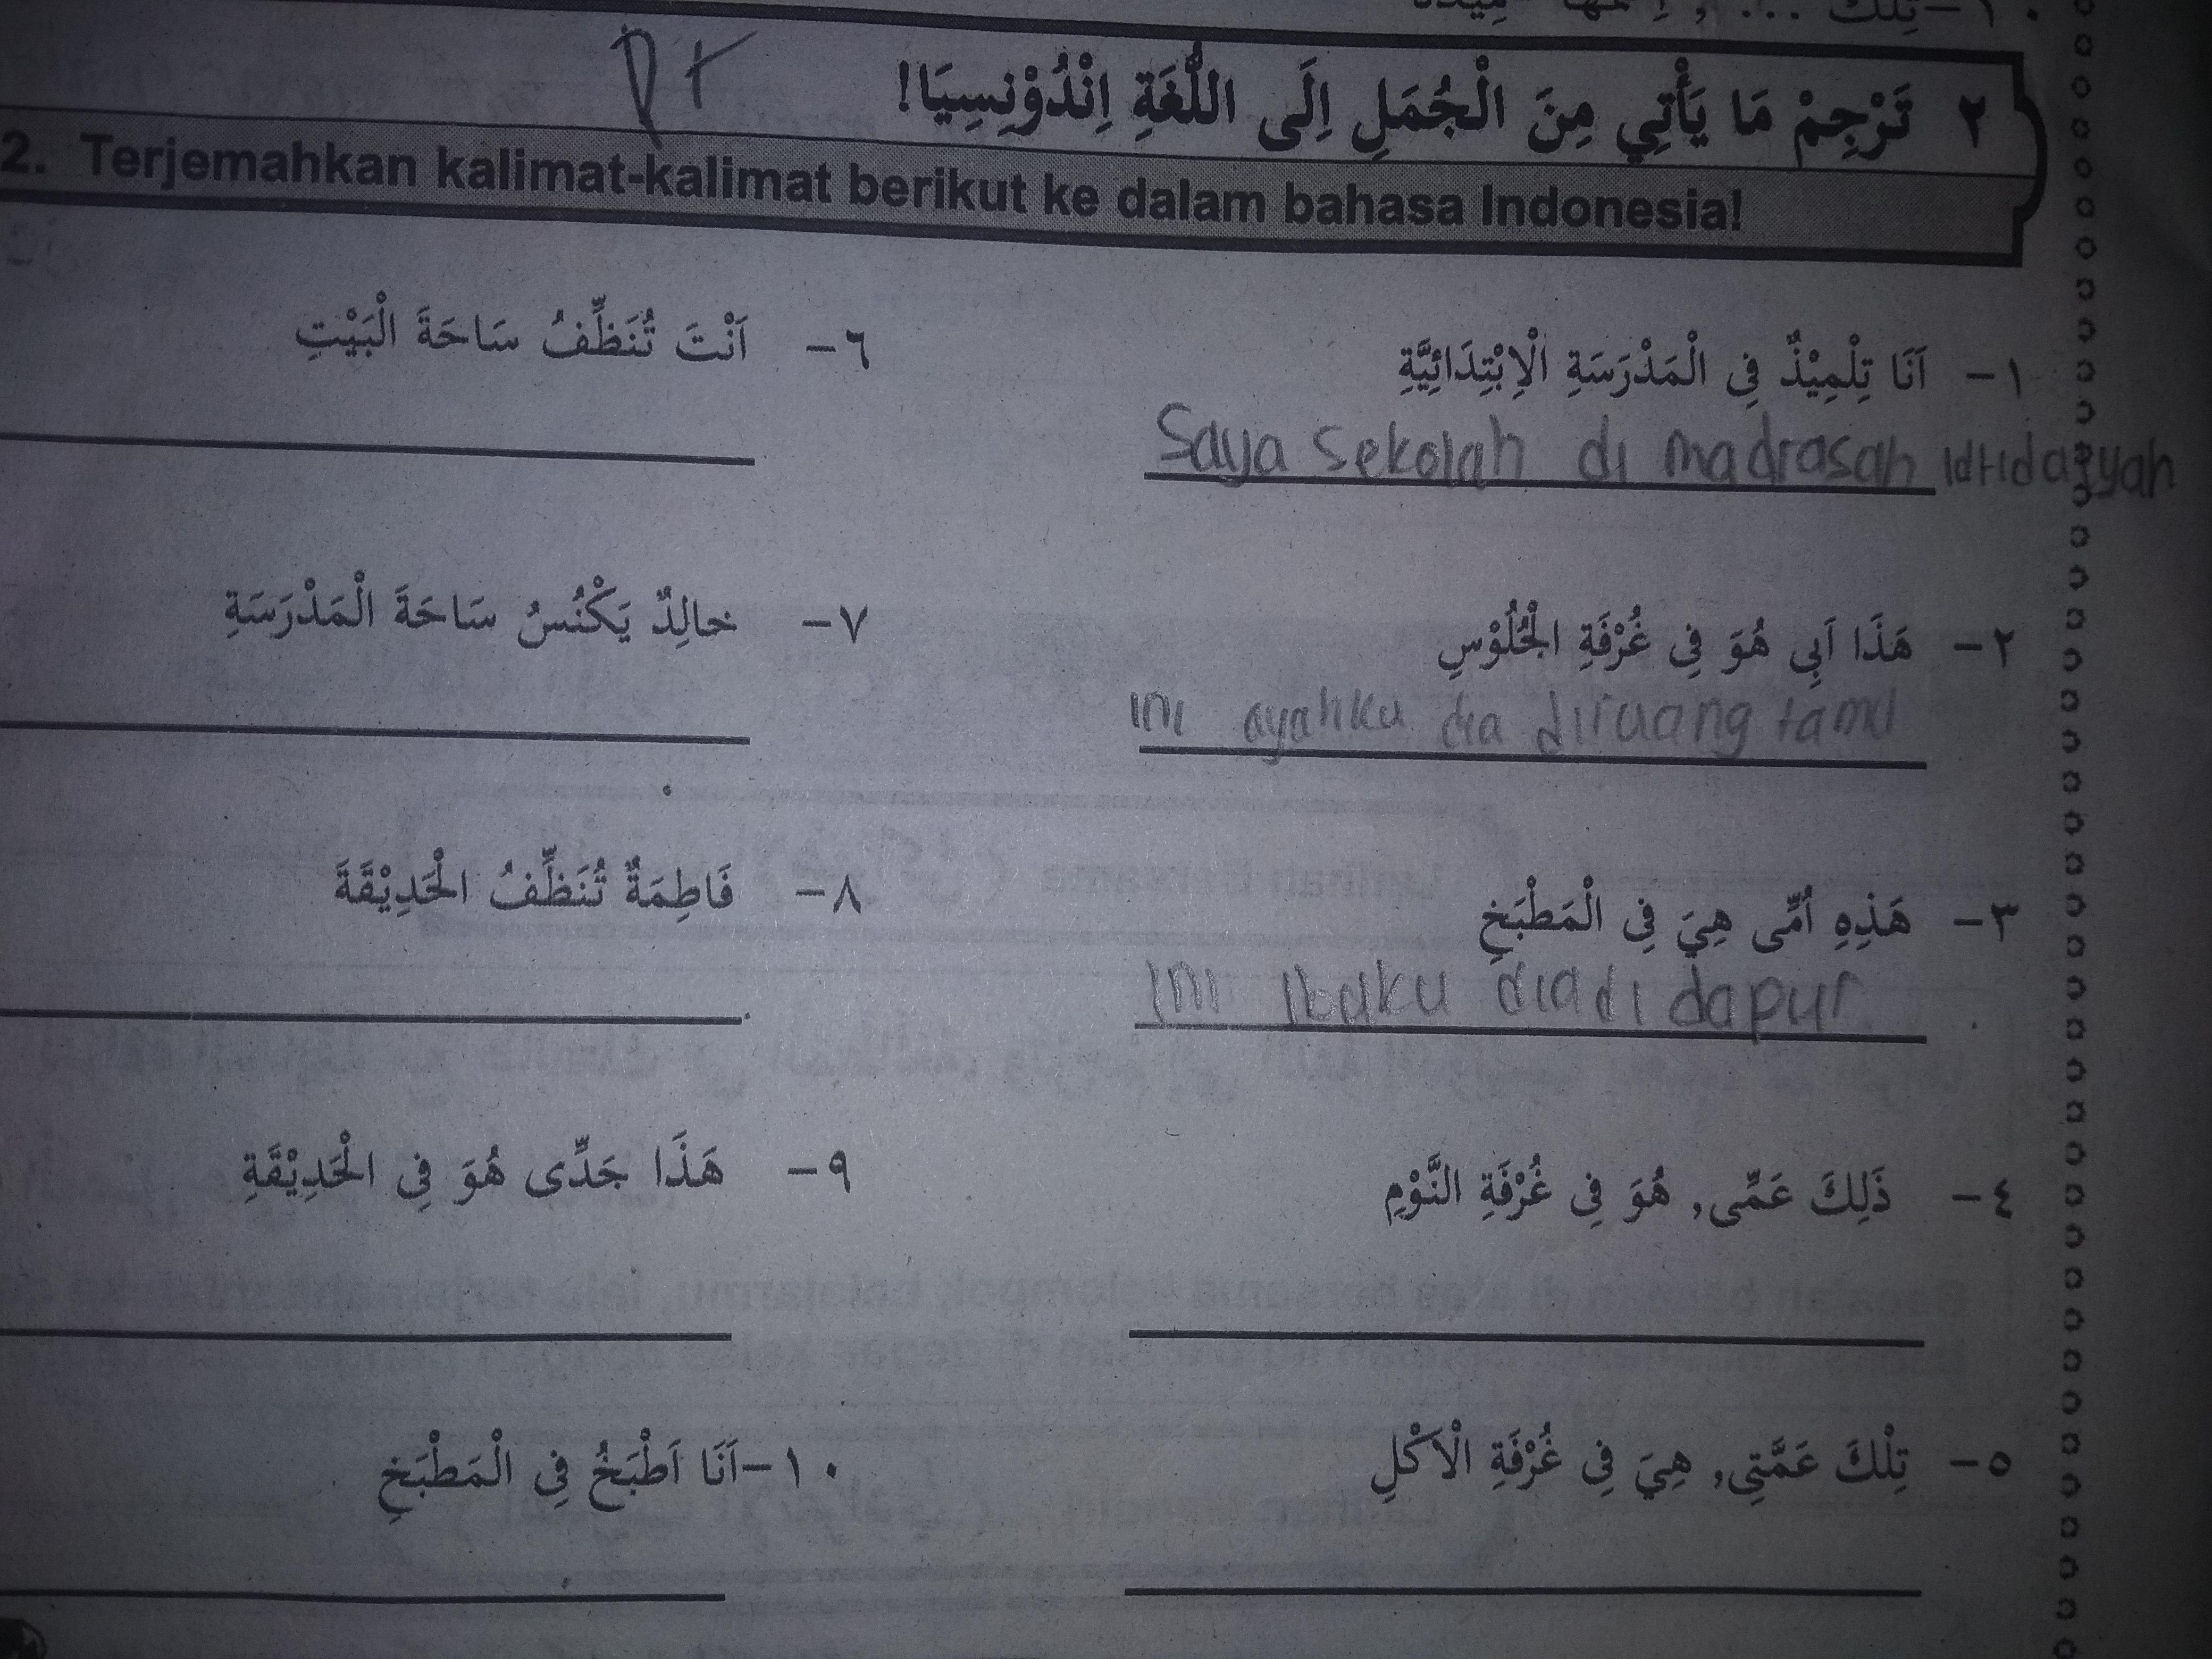 ٢ تَرْجِمْ مَا يَأْتِي مِنَ الْجُمَلِ اِلَى اللُّغَةِ اِنْدُوْنِسِيَا!
2. Terjemahkan kalimat-kalimat berikut ke dalam bahasa Indonesia!
١- اَنَا تِلْمِيْذٌ فِى الْمَدْرَسَةِ الْاِبْتِدَائِيَّةِ
Saya sekolah di madrasah
٢- هَذَا اَبِي هُوَ فِى غُرْفَةِ الْجُلُوْسِ
ini ayahku dia diruang tamu
٣- هَذِهِ اُمِّى هِيَ فِى الْمَطْبَخِ
ini ibuku dia di dapur
٤- ذَلِكَ عَمِّى, هُوَ فِى غُرْفَةِ النَّوْمِ
٥- تِلْكَ عَمَّتِى, هِيَ فِى غُرْفَةِ الْاَكْلِ
٦- اَنْتَ تُنَظِّفُ سَاحَةَ الْبَيْتِ
٧- خالِدٌ يَكْنُسُ سَاحَةَ الْمَدْرَسَةِ
٨- فَاطِمَةٌ تُنَظِّفُ الْحَدِيْقَةَ
٩- هَذَا جَدِّى هُوَ فِى الْحَدِيْقَةِ
١٠- اَنَا اَطْبَخُ فِى الْمَطْبَخِ